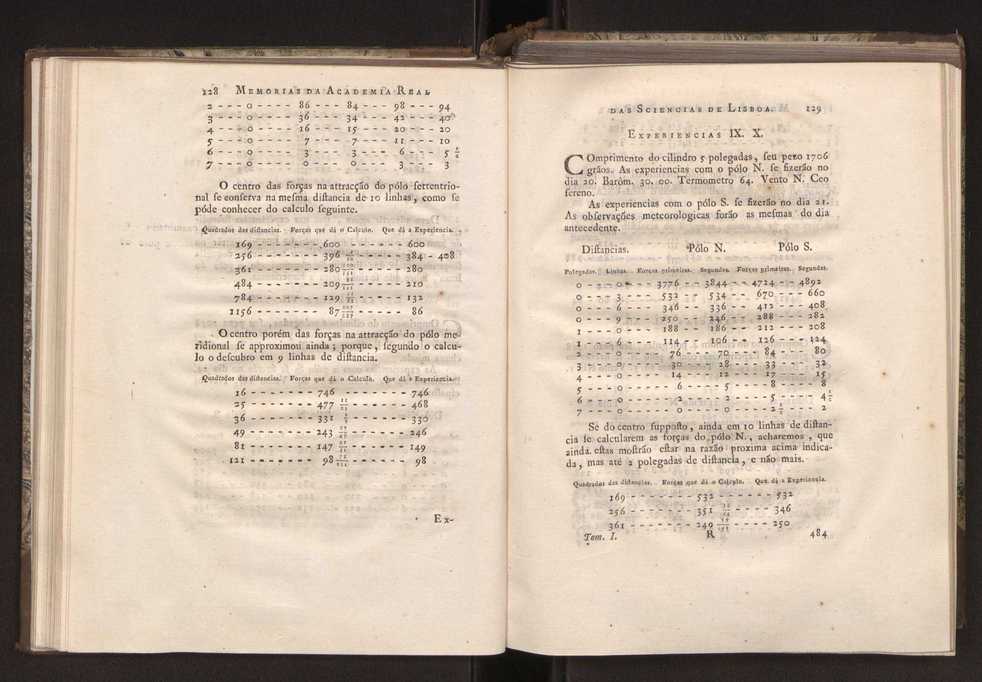 128 MEMORIAS DA ACADEMIA REAL
2 - - - 0 - - - - 86 - - - 84 - - - 98 - - - 94
3 - - - 0 - - - - 36 - - - 34 - - - 42 - - - 40
4 - - - 0 - - - - 16 - - - 15 - - - 20 - - - 20
5 - - - 0 - - - - 7 - - - 7 - - - 11 - - - 10
6 - - - 0 - - - - 3 - - - 3 - - - 6 - - - 5
7 - - - 0 - - - - 0 - - - 0 - - - 3 - - - 3
O centro das forças na attracção do pólo ſettentrio-
nal ſe conſerva na meſma diſtancia de 10 linhas, como ſe
póde conhecer do calculo ſeguinte.
Quadrados das diſtancias. Forças que dá o Calculo. Que dá a Experiencia.
169 - - - - - - - 600 - - - - - - 600
256 - - - - - - - 396 - - - - 384 - 408
361 - - - - - - - 280 - - - - - 280
484 - - - - - - - 209 - - - - - 210
784 - - - - - - - 129 - - - - - 132
1156 - - - - - - - 87 - - - - - 86
O centro porém das forças na attracção do pólo me-
ridional ſe approximou ainda; porque, ſegundo o calcu-
lo o deſcubro em 9 linhas de diſtancia.
Quadrados das diſtancias. Forças que dá o Calculo. Que dá a Experiencia.
16 - - - - - - - 746 - - - - - - 746
25 - - - - - - - 477 - - - - - - 468
36 - - - - - - - 331 - - - - - - 330
49 - - - - - - - 243 - - - - - - 246
81 - - - - - - - 147 - - - - - - 149
121 - - - - - - - 98 - - - - - - 98
Ex-
DAS SCIENCIAS DE LISBOA. 129
EXPERIENCIAS IX. X.
COmprimento do cilindro 5 polegadas, ſeu pezo 1706
grãos. As experiencias com o pólo N. ſe fizerão no
dia 20. Baróm. 30. 00. Termometro 64. Vento N. Ceo
ſereno.
As experiencias com o pólo S. ſe fizerão no dia 21.
As obſervações meteorologicas forão as meſmas do dia
antecedente.
Diſtancias. Pólo N. Pólo S.
Polegadas. Linhas. Forças primeiras. Segundas. Forças primeiras. Segundas.
0 - - - 0 - - - 3776 - - 3844 - - 4724 - - 4892
0 - - - 3 - - - - 532 - - 534 - - 670 - - - 660
0 - - - 6 - - - - 346 - - 336 - - 412 - - - 408
0 - - - 9 - - - - 250 - - 246 - - 288 - - - 282
1 - - - 0 - - - - 188 - - 186 - - 212 - - - 208
1 - - - 6 - - - - 114 - - 106 - - 126 - - - 124
2 - - - 0 - - - - 76 - - - 70 - - - 84 - - - 80
3 - - - 0 - - - - 30 - - - 28 - - - 33 - - - 32
4 - - - 0 - - - - 14 - - - 12 - - - 17 - - - 15
5 - - - 0 - - - - 6 - - - 5 - - - 8 - - - 8
6 - - - 0 - - - - 2 - - - 2 - - - 5 - - - 4½
7 - - - 0 - - - - 0 - - - 0 - - - 2½ - - - 2
Se do centro ſuppoſto, ainda em 10 linhas de diſtan-
cia ſe calcularem as forças do pólo N., acharemos, que
ainda eſtas moſtrão eſtar na razão proxima acima indica-
da, mas até 2 polegadas de diſtancia, e não mais.
Quadrados das diſtancias. Forças que dá o Calculo. Que dá a Experiencia.
169 - - - - - - - 532 - - - - - - 532
256 - - - - - - - 351 - - - - - 346
361 - - - - - - - 249 - - - - - 250
Tom. I. R 484